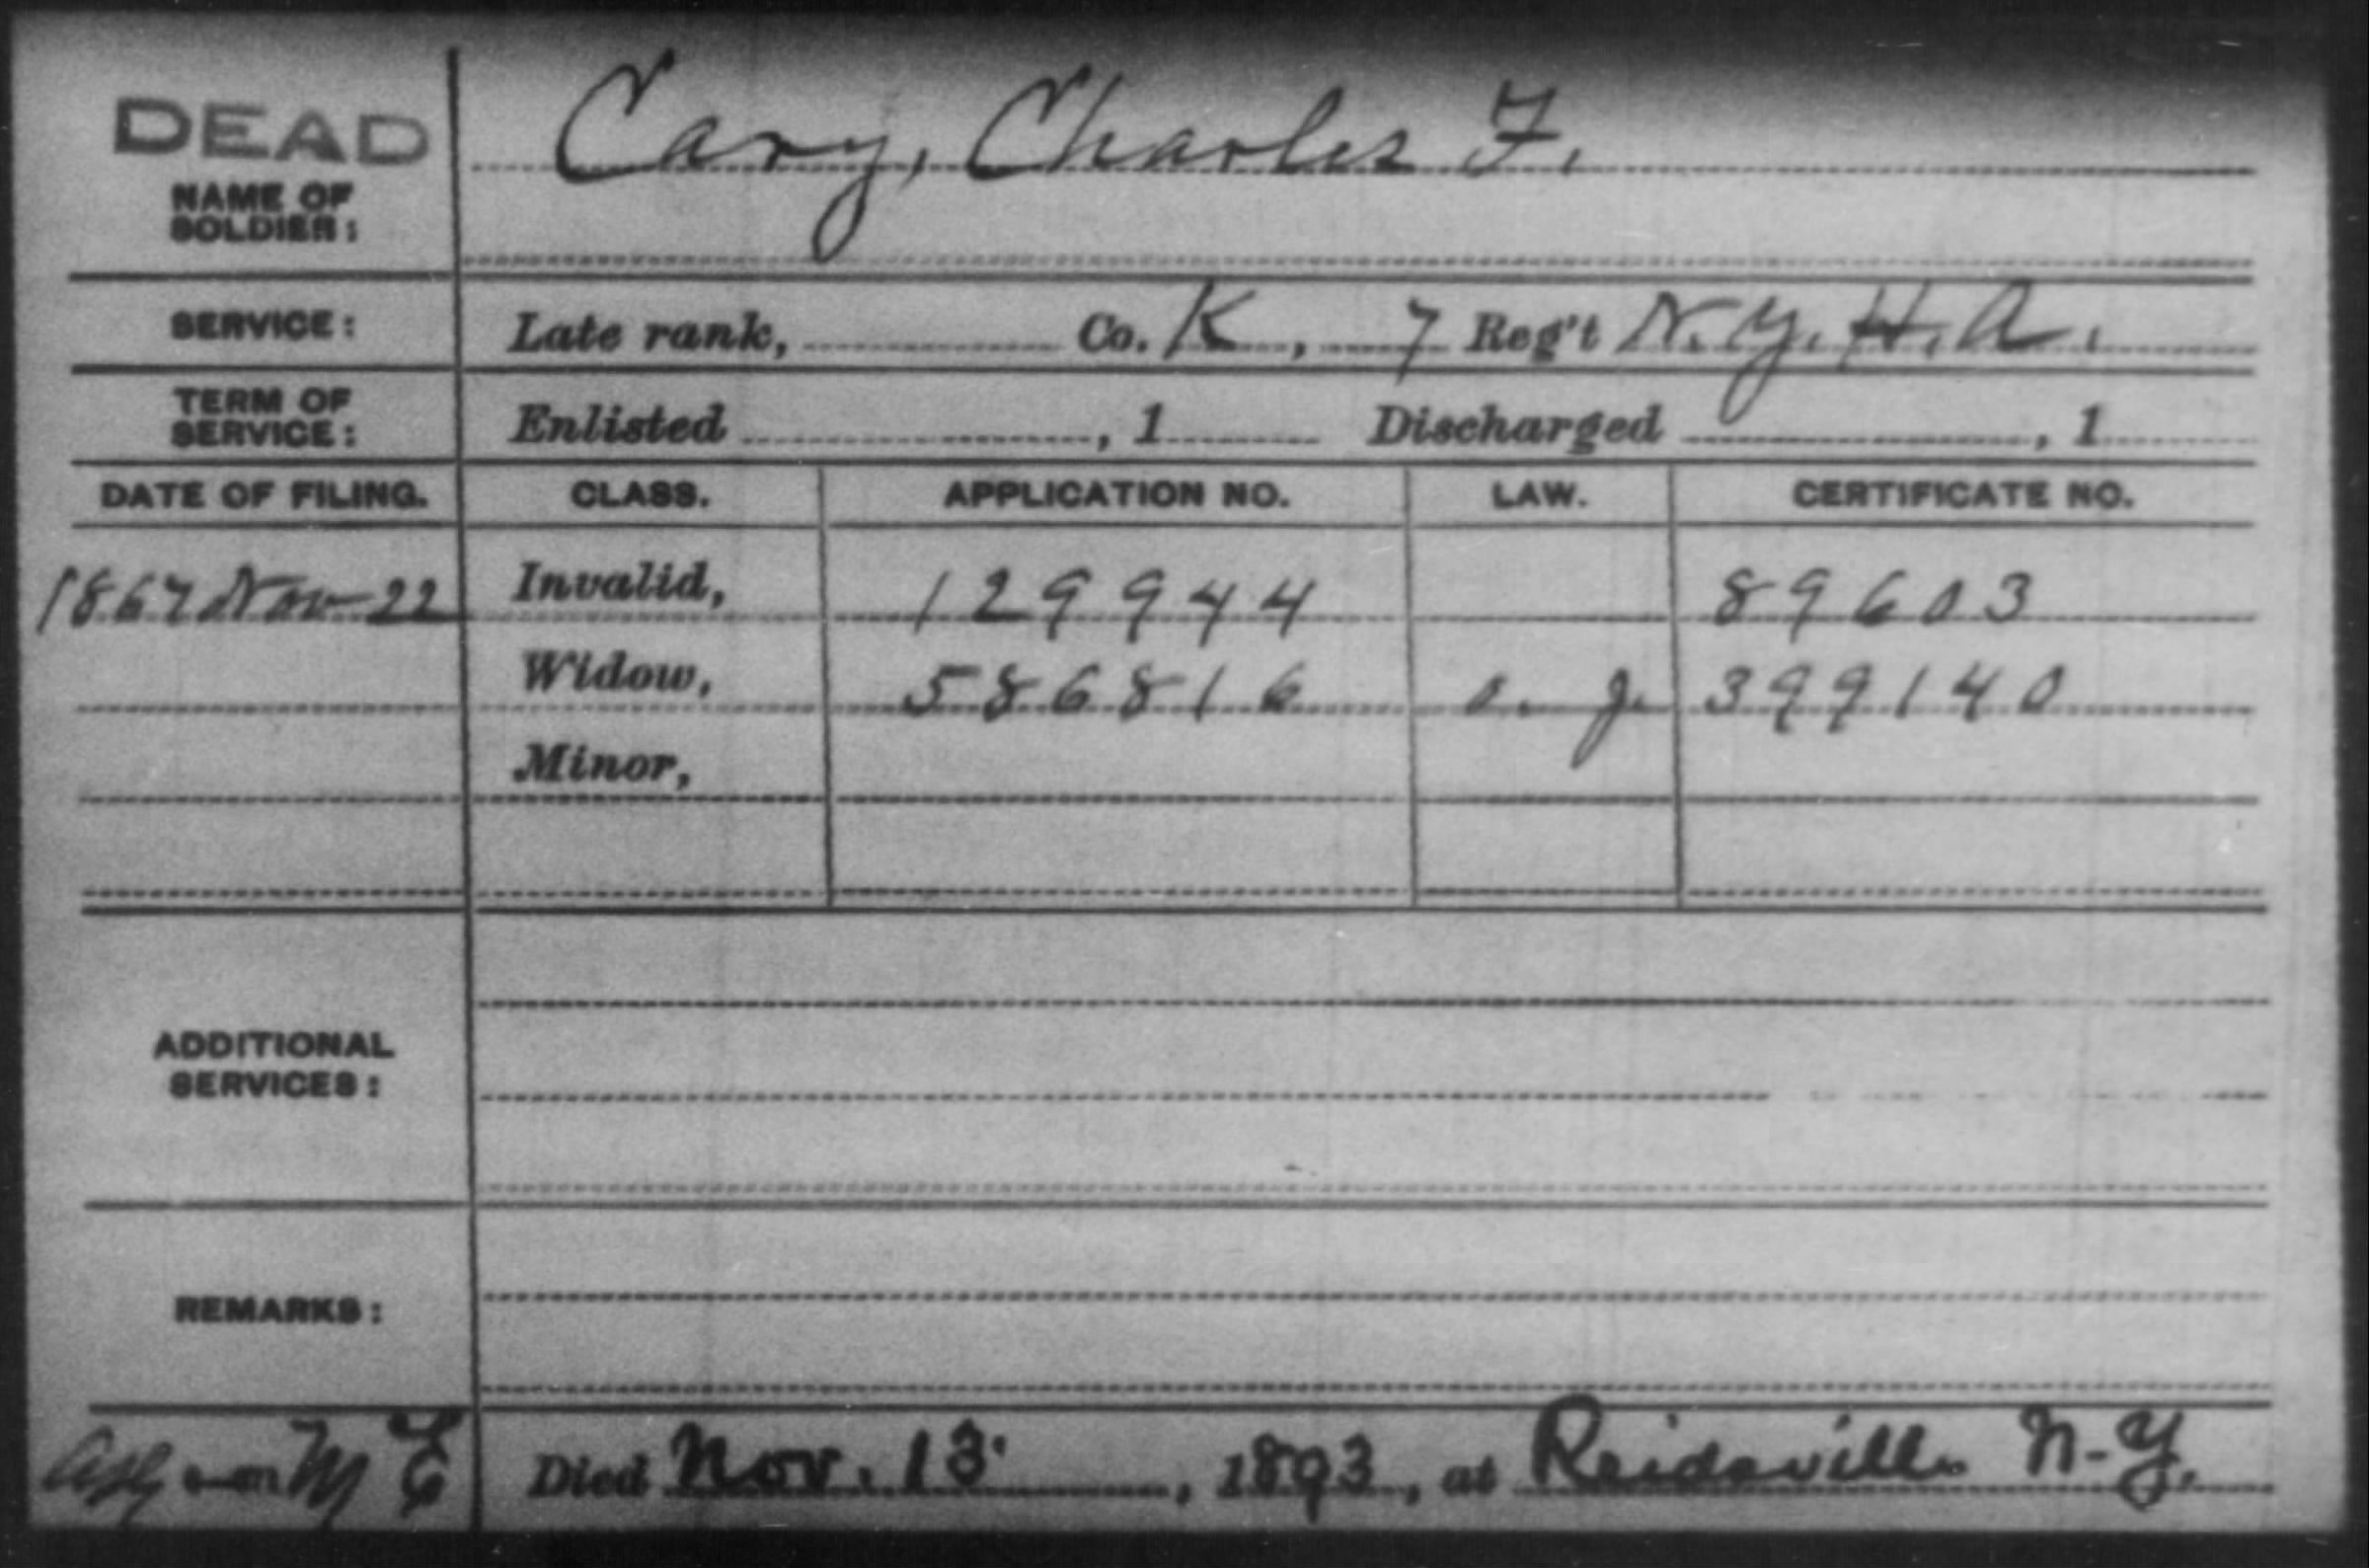 DEAD
NAME OF SOLDIER: Cary, Charles F.
SERVICE: Late rank, Co. K, 7 Reg't N.Y.H.A.
TERM OF SERVICE: Enlisted , 1 Discharged , 1
DATE OF FILING. CLASS. APPLICATION NO. LAW. CERTIFICATE NO.
1867 Nov 22 Invalid, 129944 89603
Widow, 586816 O. J. 399140
Minor,
ADDITIONAL SERVICES:
REMARKS:
M E Died Nov. 13, 1893, at Reidsville N-Y.